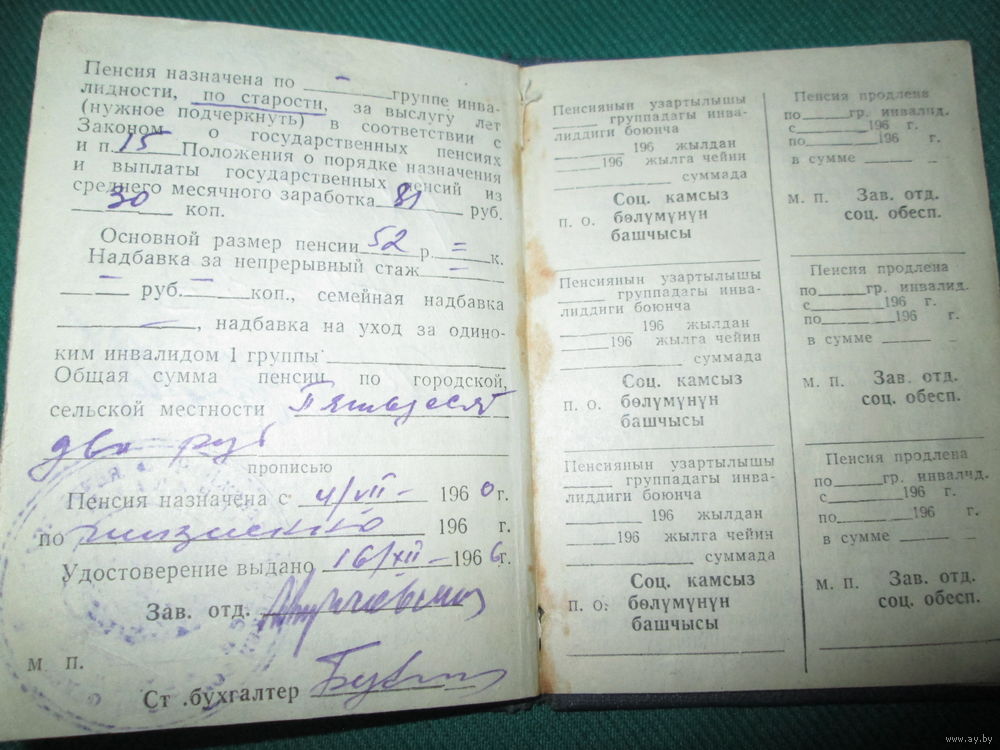 Пенсия назначена по - группе инва-
лидности, по старости, за выслугу лет
(нужное подчеркнуть) в соответствии с
Законом о государственных пенсиях
и п. 15 Положения о порядке назначения
и выплаты государственных пенсий из
среднего месячного заработка 81 руб.
30 коп.
Основной размер пенсии 52 р. = к.
Надбавка за непрерывный стаж –
– руб. – коп., семейная надбавка
–, надбавка на уход за одино-
ким инвалидом 1 группы
Общая сумма пенсии по городской,
сельской местности Пятьдесят
два руб
прописью
Пенсия назначена с 4/VII – 1960 г.
по пожизненно 196 г.
Удостоверение выдано 16/XII – 1966 г.
Зав. отд.
м п.
Ст .бухгалтер
Пенсиянын узартылышы
группадагы инва-
лиддиги боюнча
196 жылдан
196 жылга чейин
суммада
Соц. камсыз
п. о. бөлүмүнүн
башчысы
Пенсиянын узартылышы
группадагы инва-
лиддиги боюнча
196 жылдан
196 жылга чейин
суммада
Соц. камсыз
п. о. бөлүмүнүн
башчысы
Пенсиянын узартылышы
группадагы инва-
лиддиги боюнча
196 жылдан
196 жылга чейин
суммада
Соц. камсыз
п. о. бөлүмүнүн
башчысы
Пенсия продлена
по гр. инвалид.
с 196 г.
по 196 г.
в сумме
м. п. Зав. отд.
соц. обесп.
Пенсия продлена
по гр. инвалид.
с 196 г.
по 196 г.
в сумме
м. п. Зав. отд.
соц. обесп.
Пенсия продлена
по гр. инвалид.
с 196 г.
по 196 г.
в сумме
м. п. Зав. отд.
соц. обесп.
www.ay.by